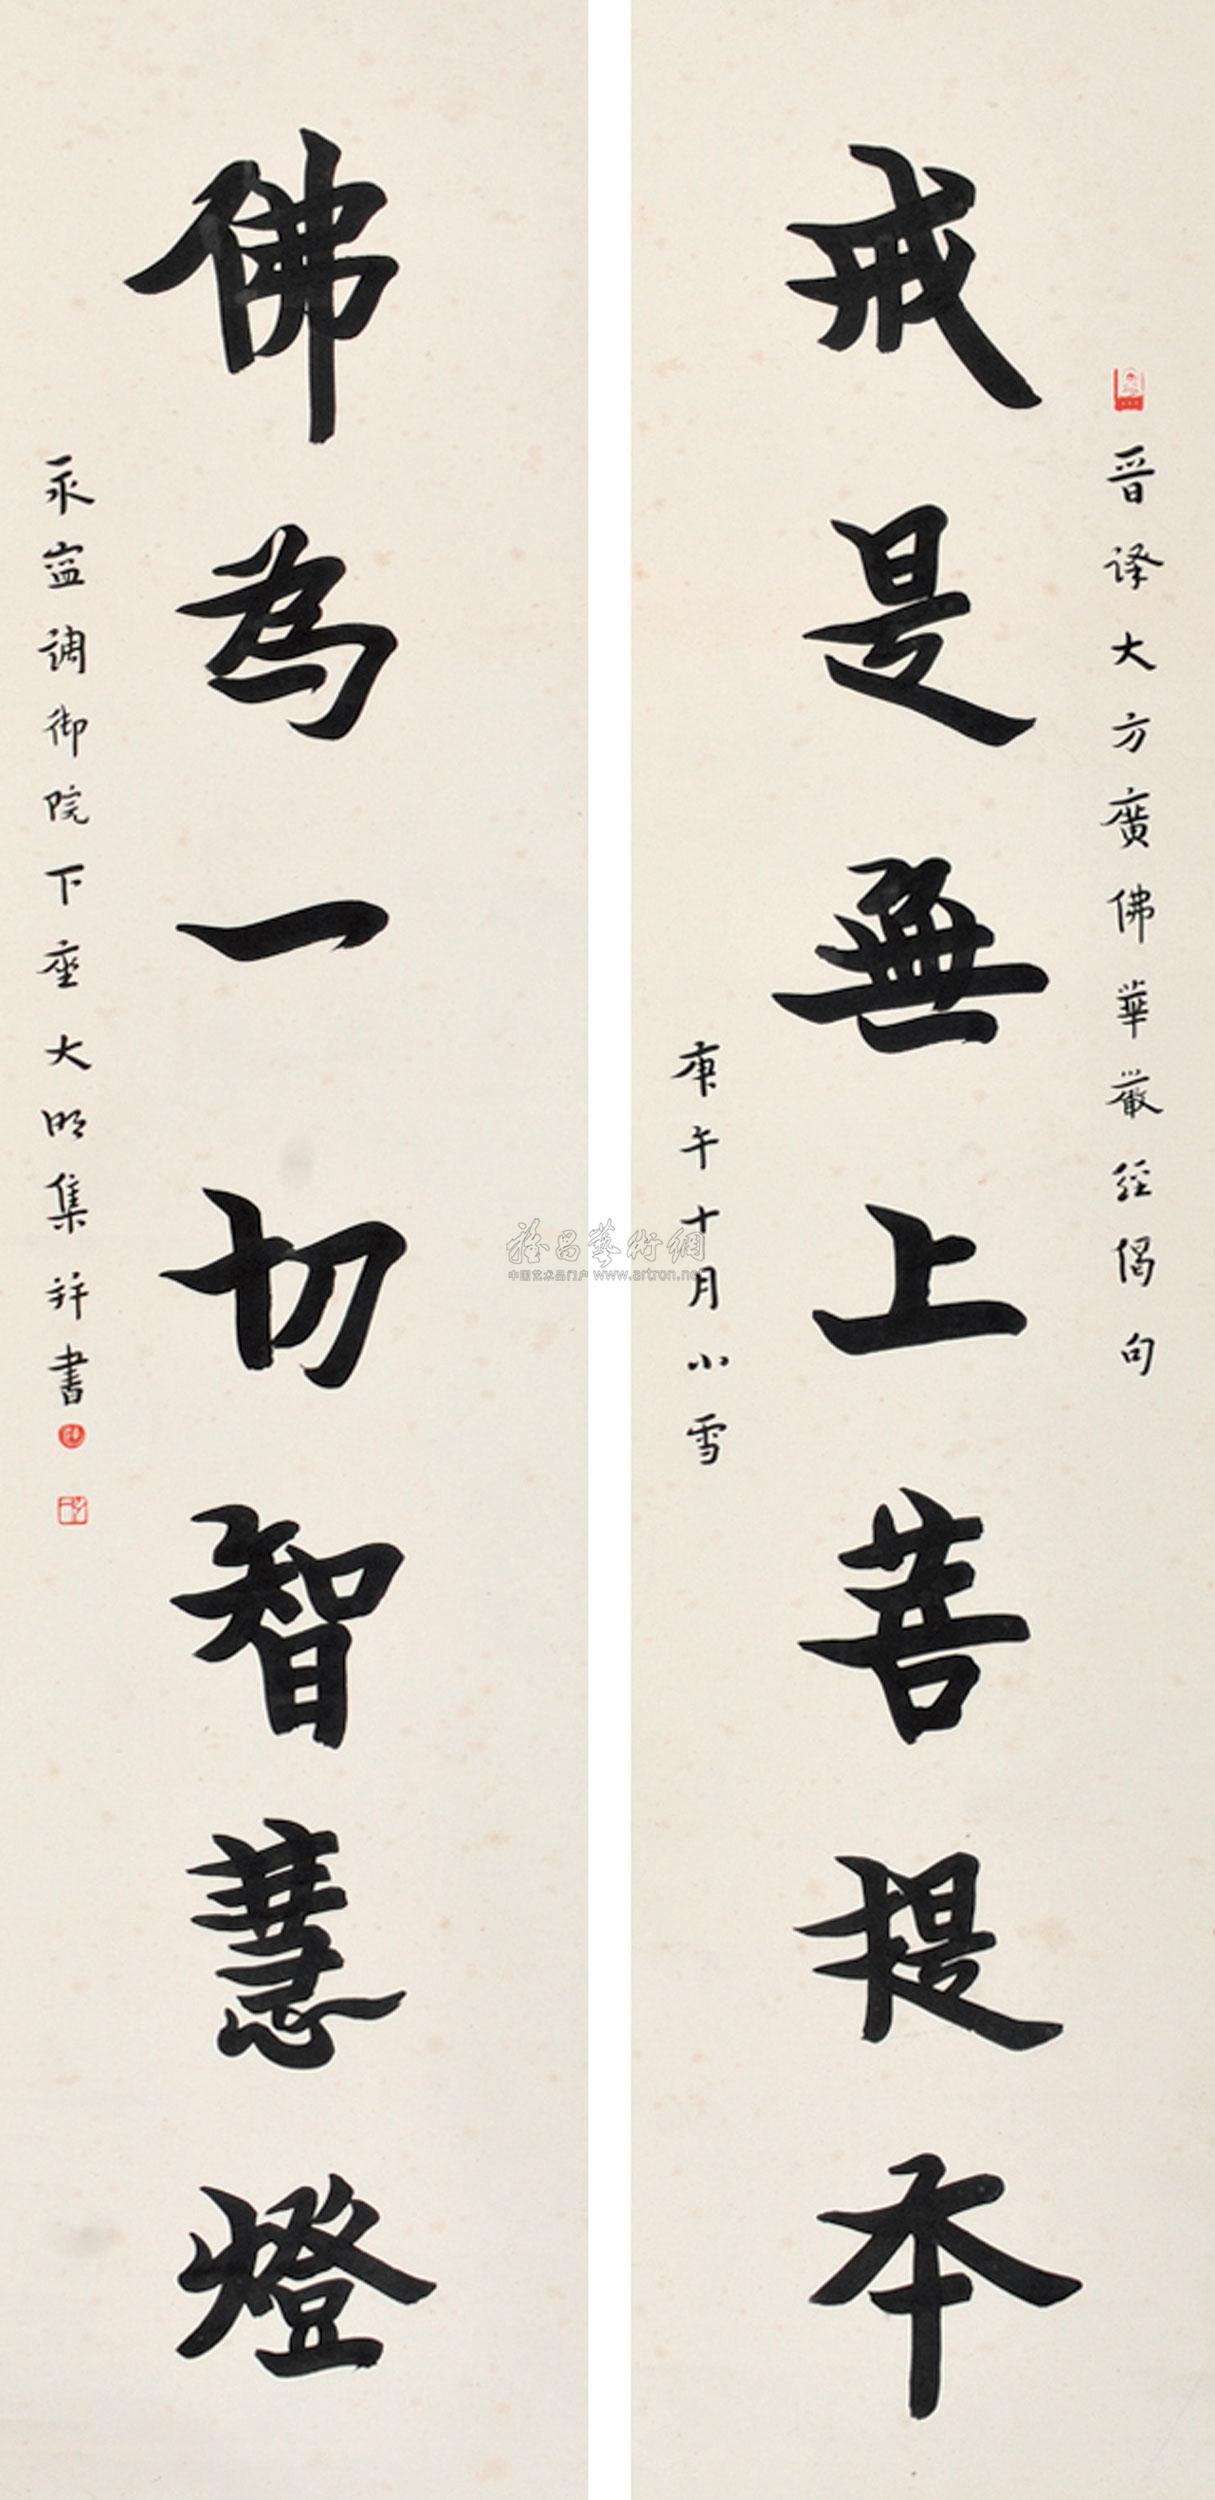 晋译大方廣佛華嚴經偈句
戒是無上菩提本
庚午十月小雪
佛為一切智慧燈
永寍调御院下座大明集并書
雅昌藝術網
中国艺术品门户 www.artron.net